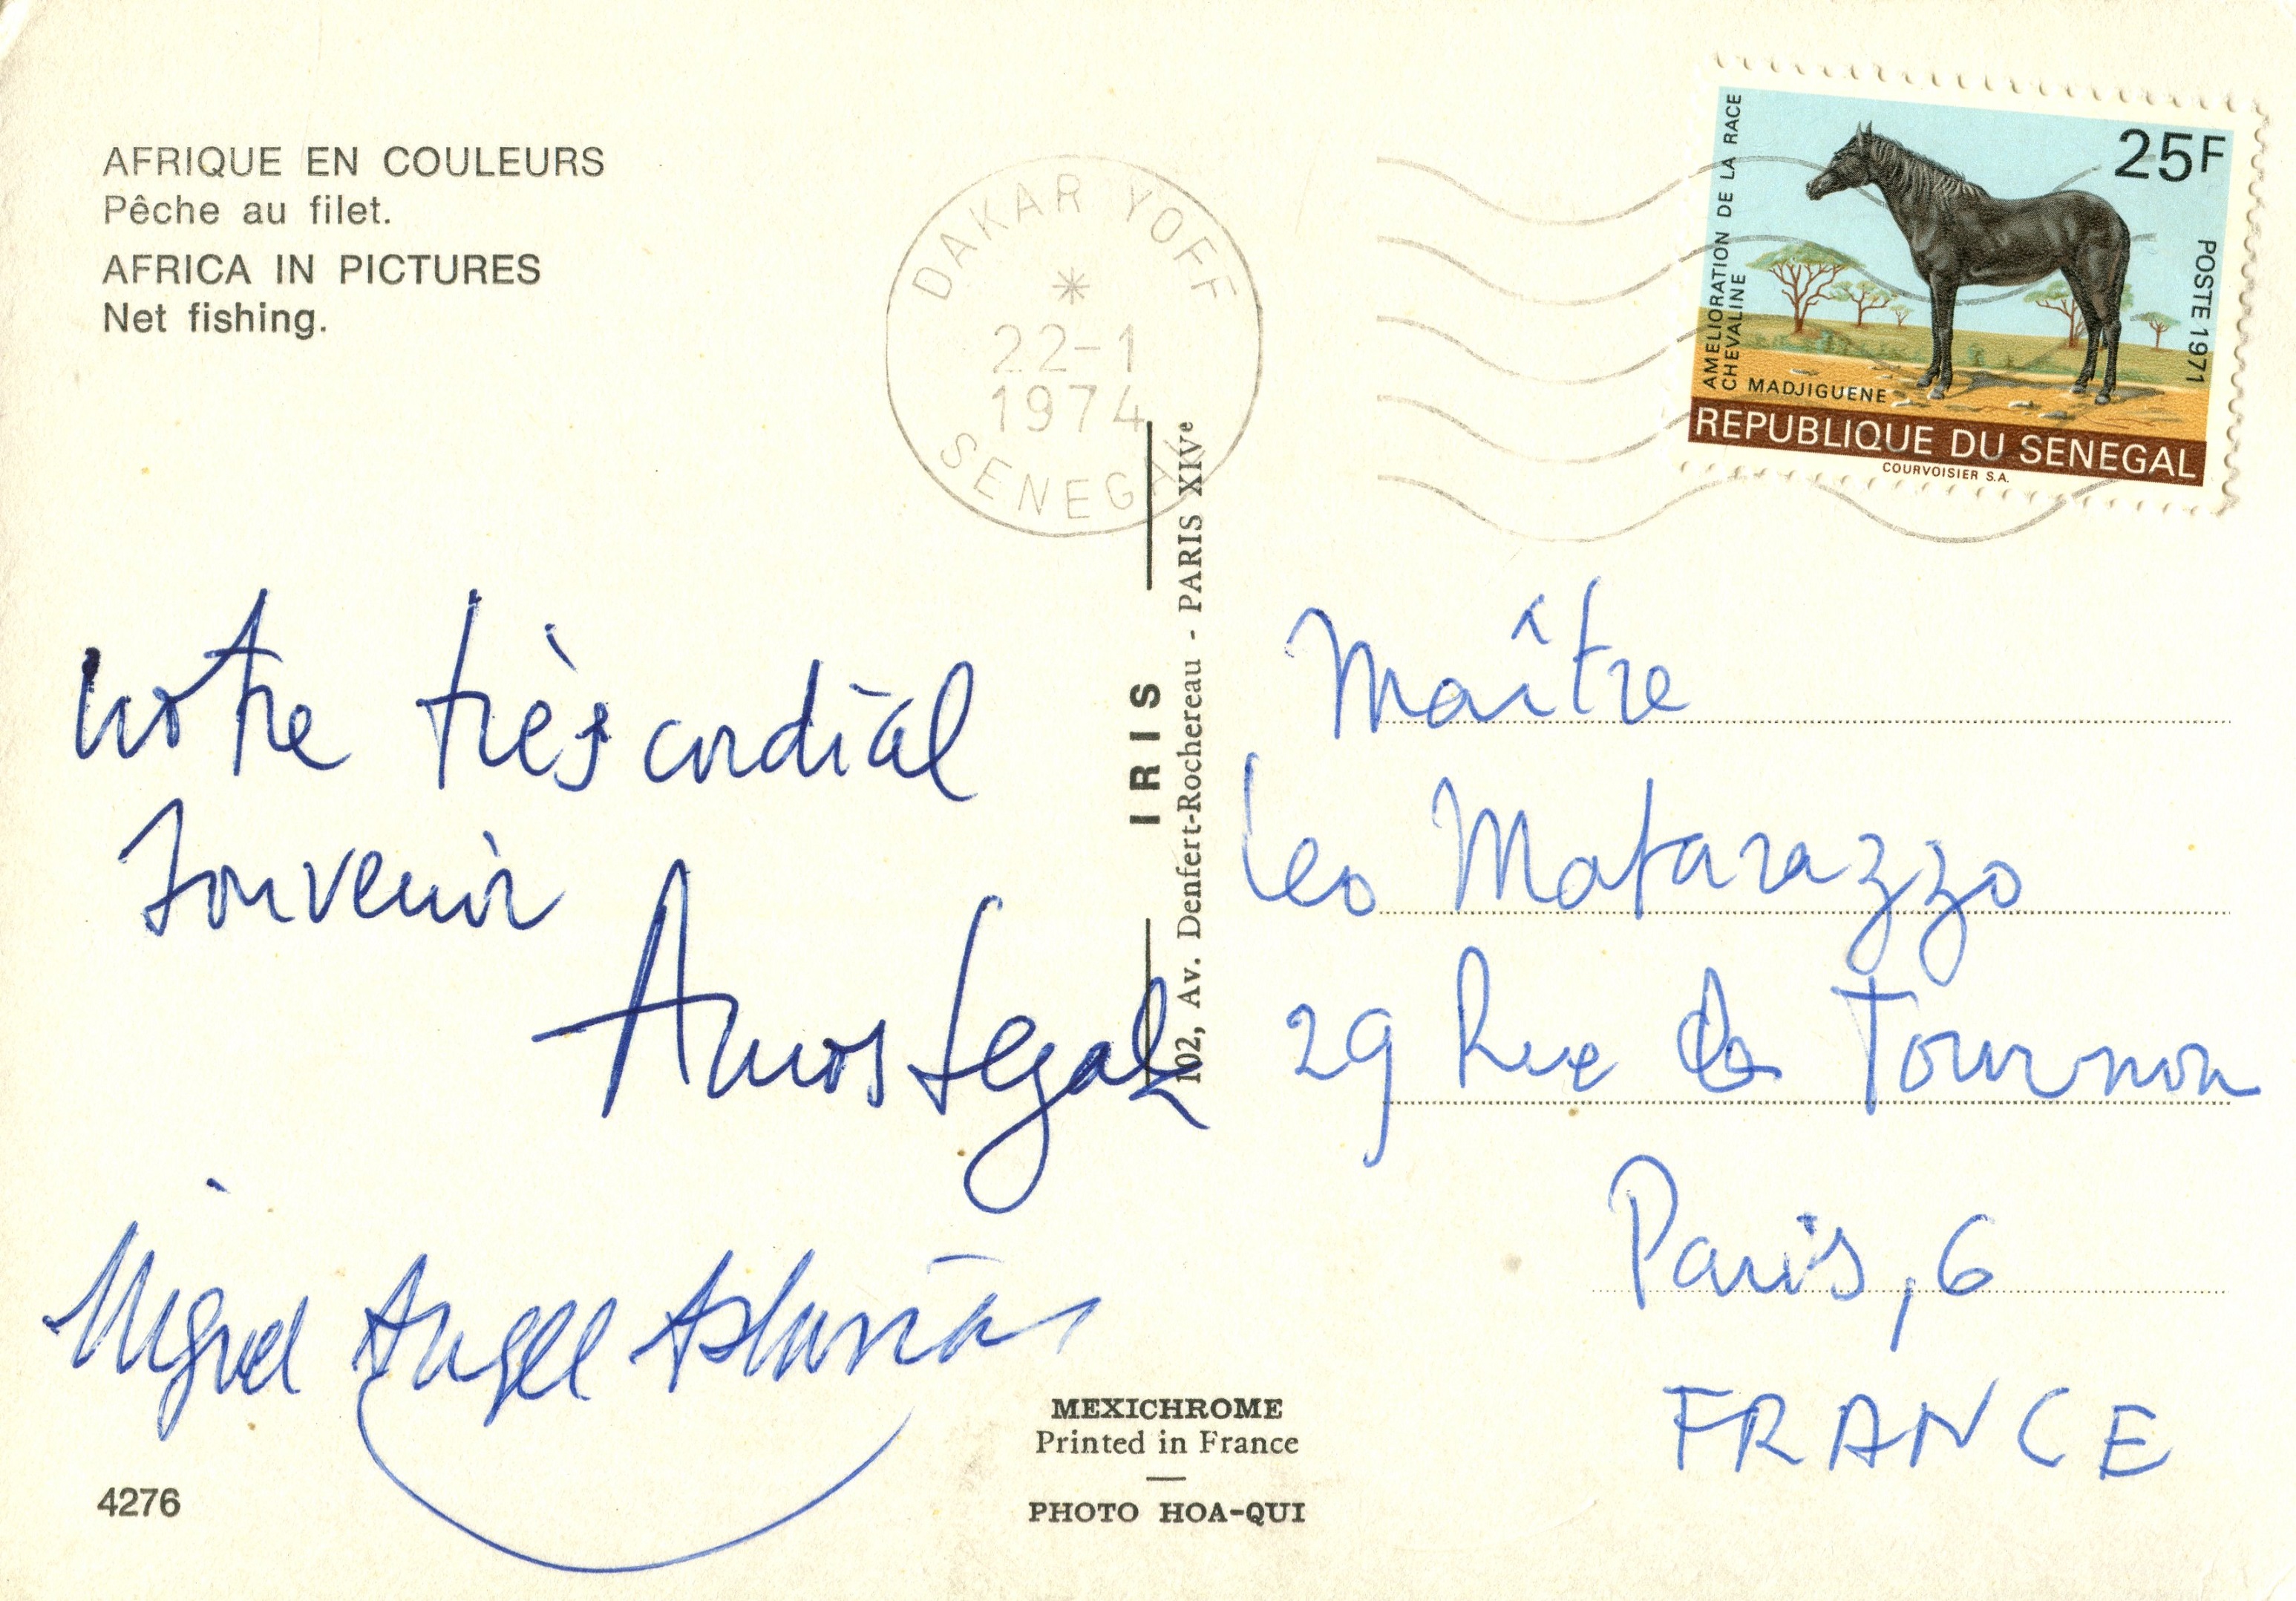 AFRIQUE EN COULEURS
Pêche au filet.
AFRICA IN PICTURES
Net fishing.
DAKAR YOFF
22-1
1974
SENEGAL
AMELIORATION DE LA RACE
CHEVALINE
25F
POSTE 1971
MADJIGUENE
REPUBLIQUE DU SENEGAL
COURVOISIER S.A.
notre très cordial
souvenir
Amos Segal
Miguel Angel Asturias
4276
IRIS
102, Av. Denfert-Rochereau - PARIS XIVe
MEXICHROME
Printed in France
PHOTO HOA-QUI
Maître
Leo Matarazzo
29 Rue de Tournon
Paris, 6
FRANCE